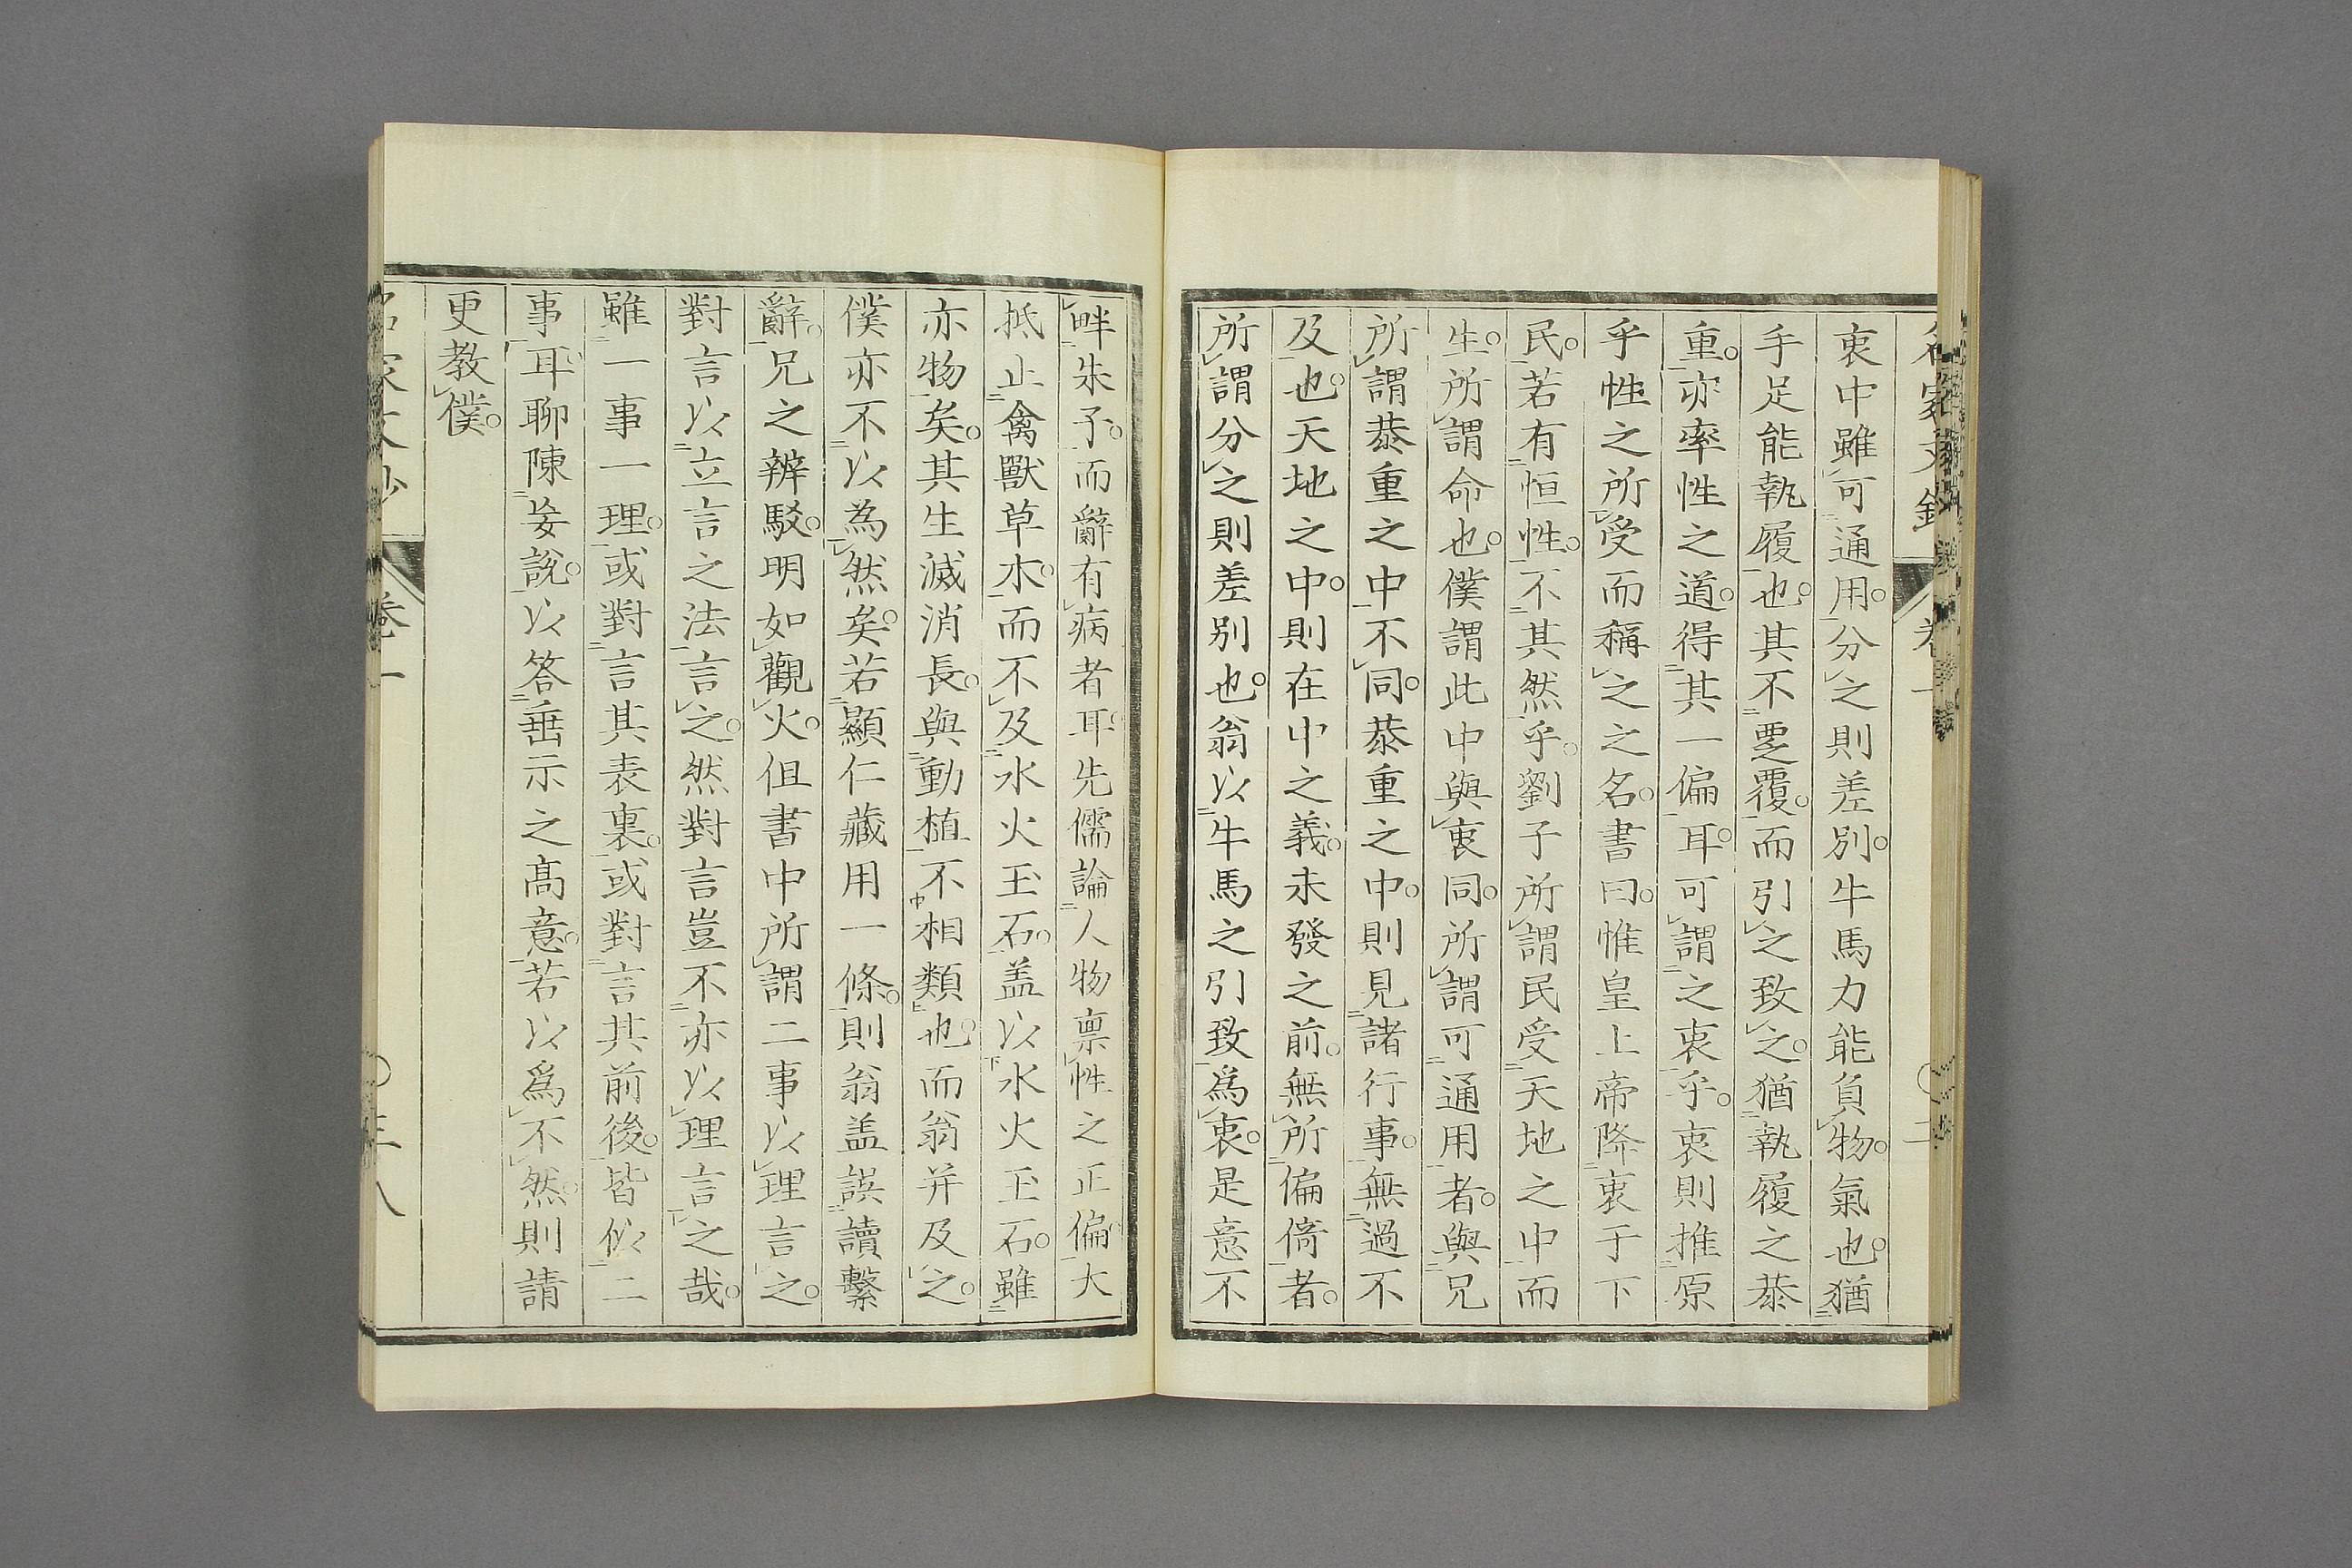 衷中雖可通用。分之則差別。牛馬力能負物。氣也。猶
手足能執履也。其不要覆。而引之致之。猶執履之恭
重。亦率性之道。得其一偏耳。可謂之衷乎。衷則推原
乎性之所受而稱之之名。書曰。惟皇上帝降衷于下
民。若有恒性。不其然乎。劉子所謂民受天地之中而
生。所謂命也。僕謂此中與衷同。所謂可通用者。與兄
所謂恭重之中不同。恭重之中。則見諸行事。無過不
及也。天地之中。則在中之義。未發之前。無所偏倚者。
所謂分之則差別也。翁以牛馬之引致爲衷。是意不
畔朱子。而辭有病者耳。先儒論人物禀性之正偏。大
抵止禽獸草木。而不及水火玉石。盖以水火玉石。雖
亦物矣。其生滅消長。與動植不相類也。而翁并及之。
僕亦不以為然矣。若顯仁藏用一條。則翁盖誤讀繫
辭。兄之辨駁。明如觀火。但書中所謂二事以理言之。
對言以立言之法言之。然對言豈不亦以理言之哉。
雖一事一理。或對言其表裏。或對言其前後。皆似二
事耳。聊陳妄說。以答垂示之髙意。若以爲不然。則請
更教僕。
名家文抄
卷一
三八